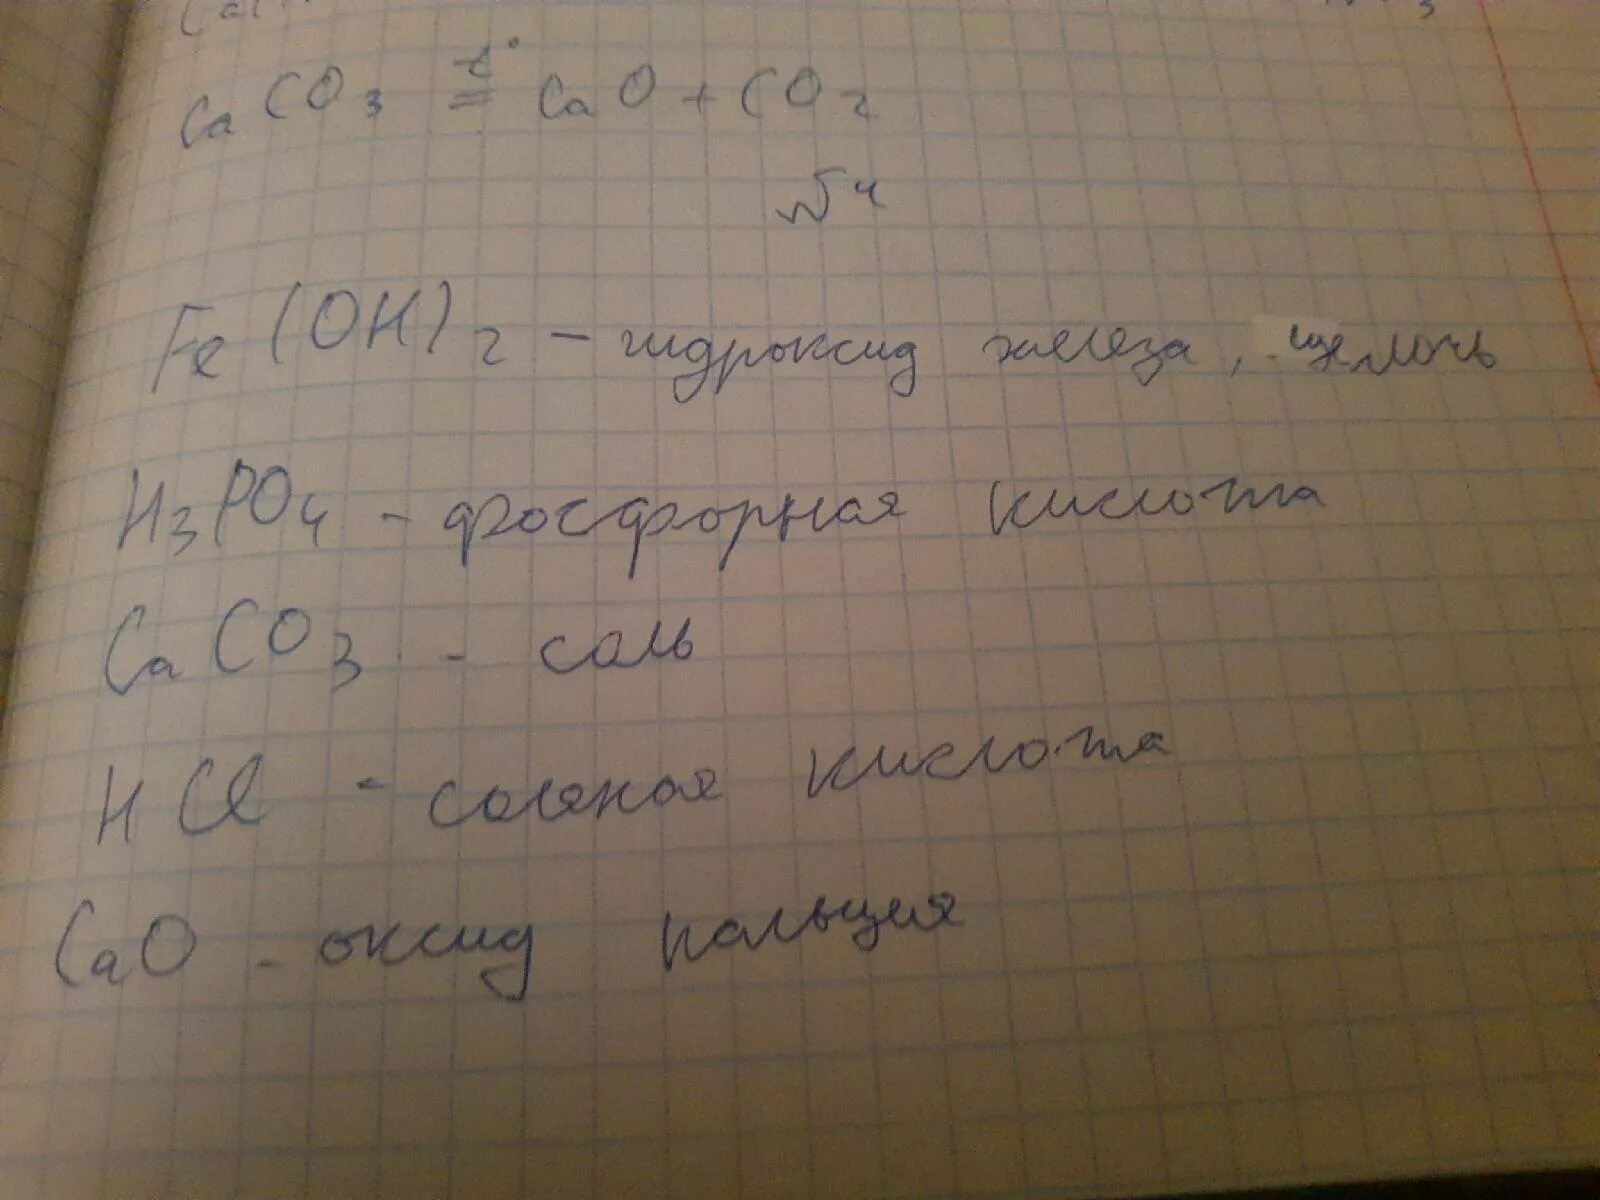 CaCO₃ =t° CaO + CO₂
№4
Fe(OH)₂ – гидроксид железа, щелочь
H₃PO₄ – фосфорная кислота
CaCO₃ - соль
HCl - соляная кислота
CaO - оксид кальция